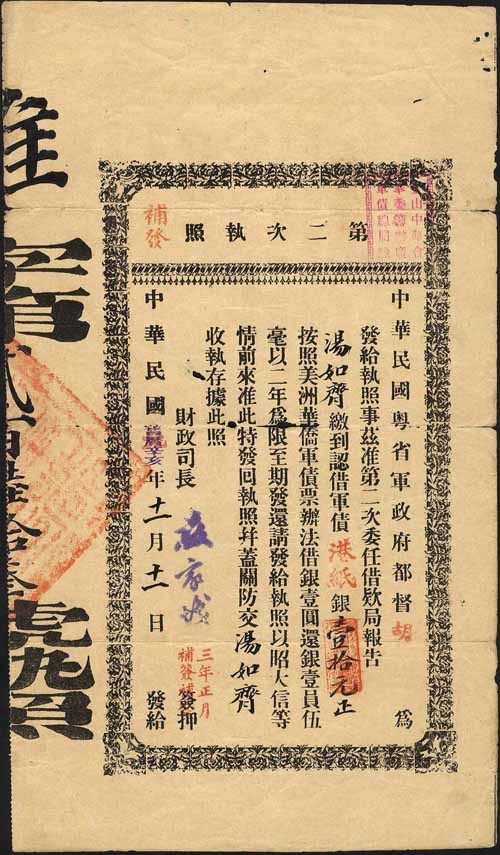 第二次執照
補發
中華民國粵省軍政府都督胡 為
發給執照事茲准第二次委任借欵局報告
湯如齊繳到認借軍債港紙銀壹拾元正
按照美洲華僑軍債票辦法借銀壹圓還銀壹員伍
毫以二年為限至期發還請發給執照以昭大信等
情前來准此特發回執照幷蓋關防交湯如齊
收執存據此照
財政司長
簽押
三年正月
中華民國 辛亥年十一月十一日 發給